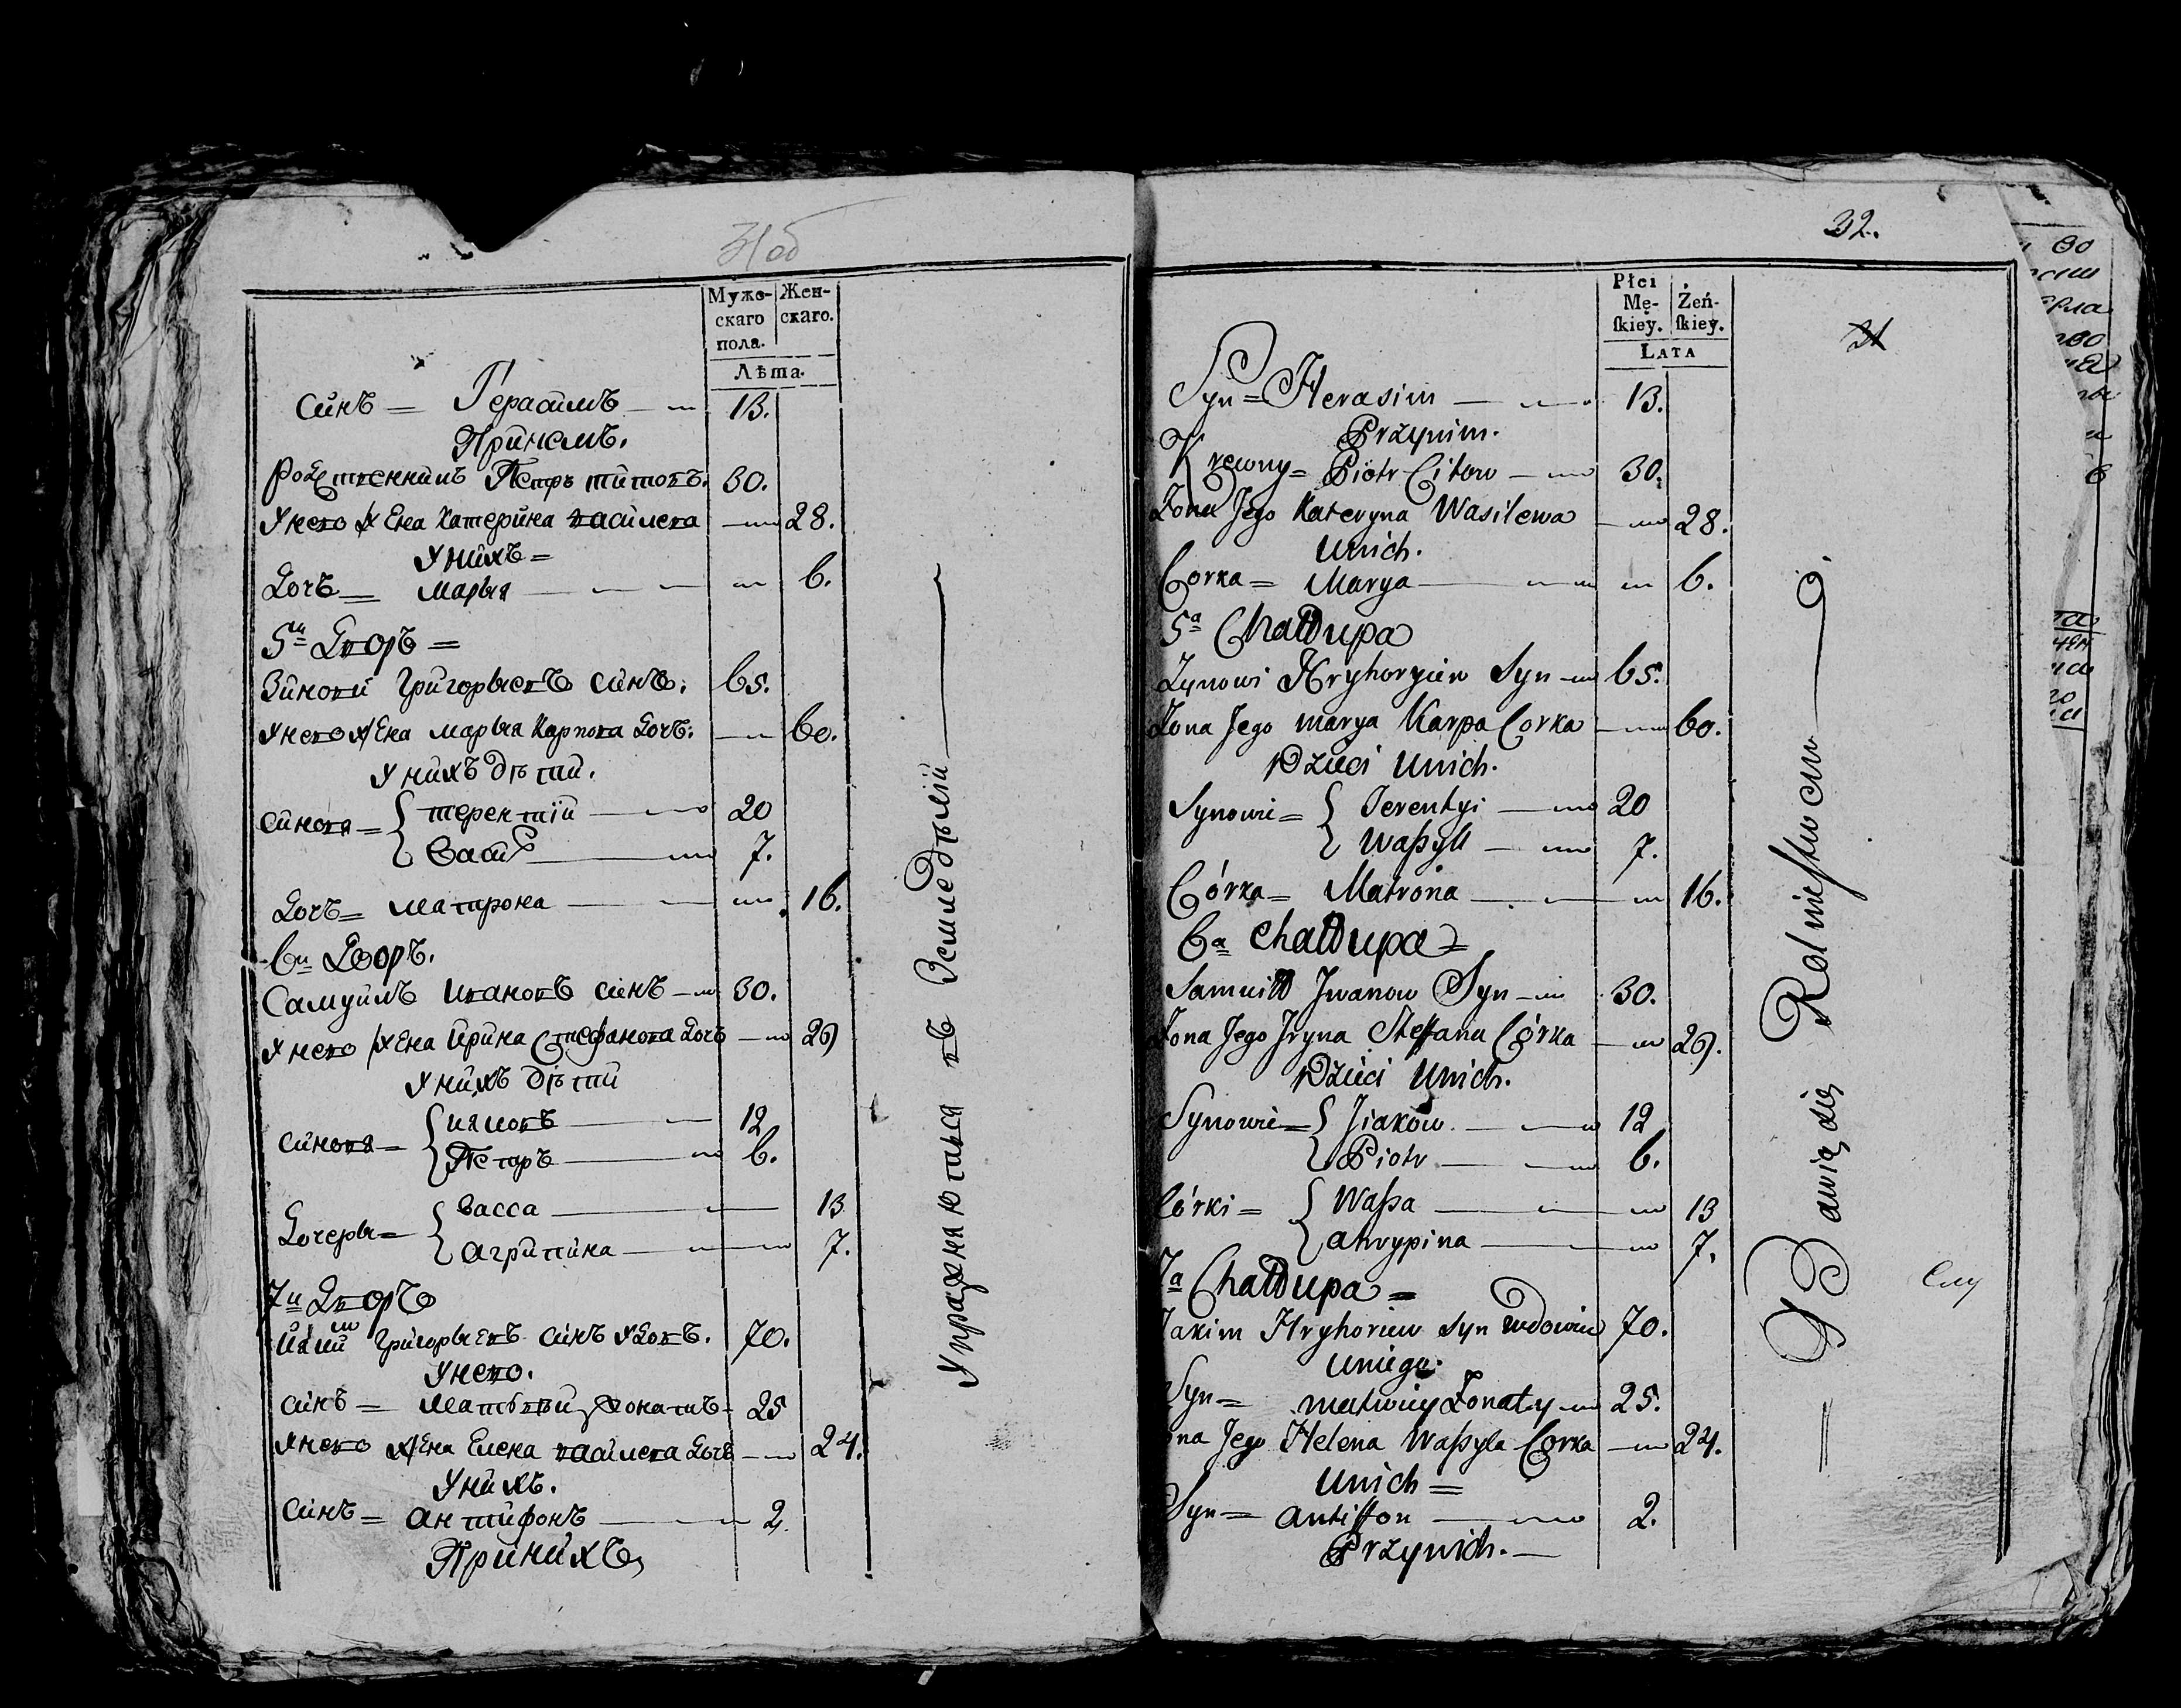 31об
Мужескаго пола. Женскаго.
Лѣта.
Синъ = Герасимъ 13.
Принемъ.
Родственникъ Петръ титовъ. 30.
Унево жена Катерина василева 28.
Унихъ =
Дочъ = Марья 6.
5й Дворъ =
Зиновй Григорьевъ синъ. 65.
Унево жена Марья Карпова Дочъ. 60.
Унихъ дѣти.
Синовя = { терентій 20
Васил 7.
Дочъ = матрона 16.
6й Дворъ.
Самуилъ ивановъ синъ 30.
Унево жена Ирина Стефанова Дочъ 29
Унихъ дѣти
Синовя = { ияковъ 12
Петръ 6.
Дочеры = { Васса 13
агрипина 7.
7й Дворъ
Григорьевъ синъ вдовъ. 70.
Унево.
Синъ = Матвей жонатъ 25
Унево жена Елена василева Дочъ 24.
Унихъ.
Синъ = антифонъ 2.
Принихъ
Упражняються въ Земледѣлій
32.
31
Płci Męſkiey. Żeńſkiey.
Lata
Syn = Herasim 13.
Przynim.
Krewny = Piotr Citow 30.
Żona Jego Kateryna Wasilewa 28.
Unich.
Corka = Marya 6.
5a Chałłupa
Zynowi Hryhoryiew Syn 65.
Żona Jego marya Karpa Corka 60.
Dzieci Unich.
Synowie = { Terentyi 20
Waßyll 7.
Córka = Matrona 16.
6a Chałłupa =
Samuiłł Jwanow Syn 30.
Żona Jego Jryna Steffana Córka 29.
Dzieci Unich.
Synowie = { Jiakow 12
Piotr 6.
Córki = { Waßa 13
ahrypina 7.
7a Chałłupa =
Jakim Hryhoriew Syn wdowiec 70.
Uniego.
Syn = matwiey Żonaty 25.
ona Jego Helena Waßyla Corka 24.
Unich =
Syn = antiffon 2.
Przynich.
= Bawią się Rolnieſtwem